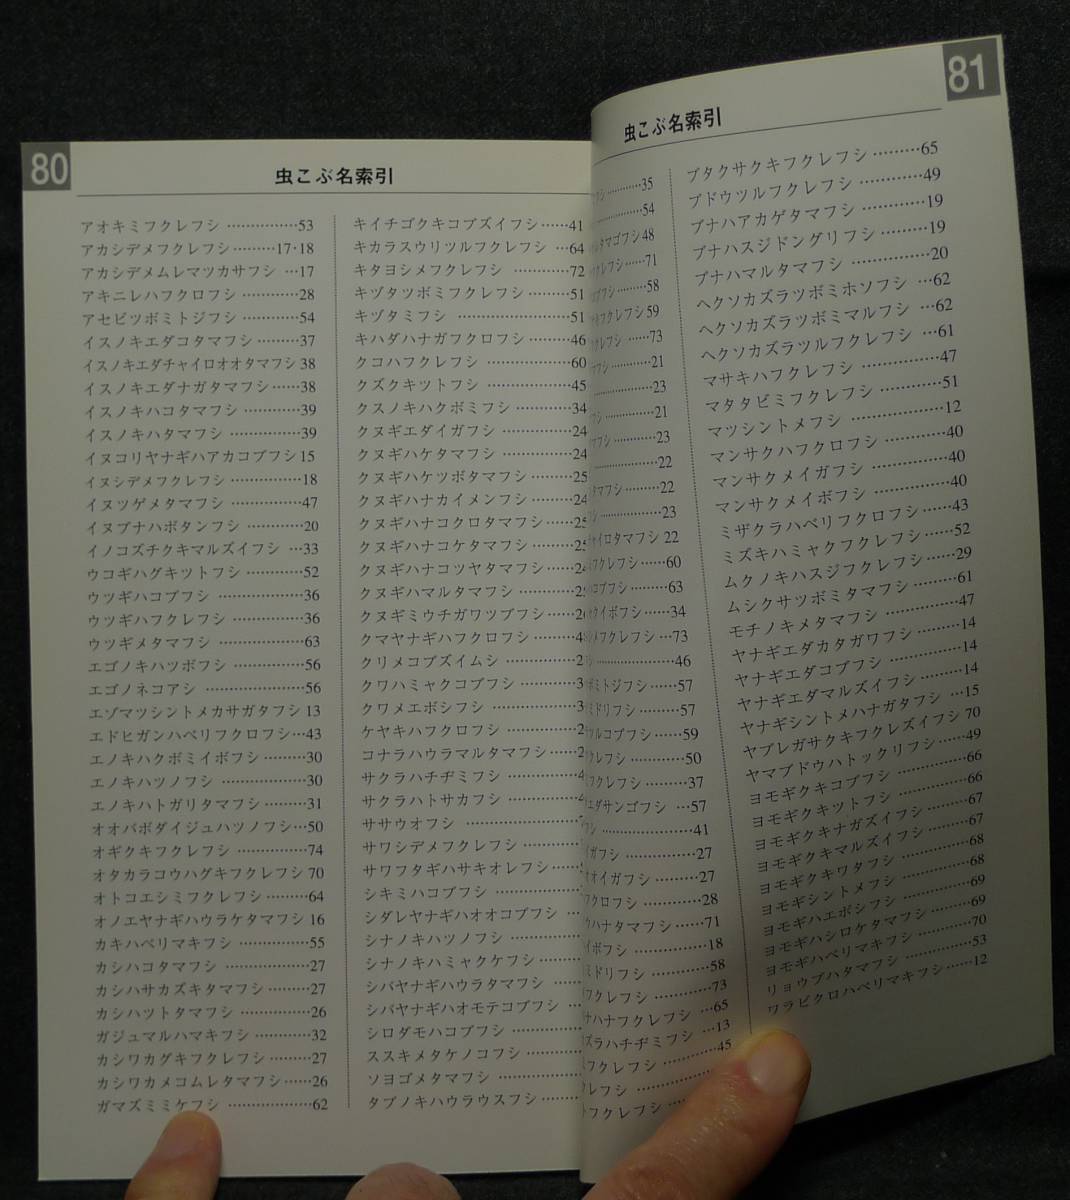 80
虫こぶ名索引
アオキミフクレフシ ……………53
アカシデメフクレフシ………17·18
アカシデメムレマツカサフシ …17
アキニレハフクロフシ …………28
アセビツボミトジフシ …………54
イスノキエダコタマフシ ………37
イスノキエダチャイロオオタマフシ 38
イスノキエダナガタマフシ ……38
イスノキハコタマフシ …………39
イスノキハタマフシ ……………39
イヌコリヤナギハアカコブフシ 15
イヌシデメフクレフシ …………18
イヌツゲメタマフシ ……………47
イヌブナハボタンフシ …………20
イノコズチクキマルズイフシ …33
ウコギハグキツトフシ …………52
ウツギハコブフシ ………………36
ウツギハフクレフシ ……………36
ウツギメタマフシ ………………63
エゴノキハツボフシ ……………56
エゴノネコアシ …………………56
エゾマツシントメカサガタフシ 13
エドヒガンハベリフクロフシ…43
エノキハクボミイボフシ ………30
エノキハツノフシ ………………30
エノキハトガリタマフシ ………31
オオバボダイジュハツノフシ…50
オギクキフクレフシ ……………74
オタカラコウハグキフクレフシ 70
オトコエシミフクレフシ ………64
オノエヤナギハウラケタマフシ 16
カキハベリマキフシ ……………55
カシハコタマフシ ………………27
カシハサカズキタマフシ ………27
カシハツトタマフシ ……………26
ガジュマルハマキフシ …………32
カシワカグキフクレフシ ………27
カシワカメコムレタマフシ……26
ガマズミミケフシ ………………62
キイチゴクキコブズイフシ……41
キカラスウリツルフクレフシ …64
キタヨシメフクレフシ …………72
キヅタツボミフクレフシ ………51
キヅタミフシ ……………………51
キハダハナガフクロフシ ………46
クコハフクレフシ ………………60
クズクキツトフシ ………………45
クスノキハクボミフシ …………34
クヌギエダイガフシ ……………24
クヌギハケタマフシ ……………24
クヌギハケツボタマフシ ………25
クヌギハナカイメンフシ ………24
クヌギハナコクロタマフシ ……25
クヌギハナコケタマフシ ………25
クヌギハナコツヤタマフシ ……
クヌギハマルタマフシ …………
クヌギミウチガワツブフシ ……
クマヤナギハフクロフシ ………
クリメコブズイムシ ……………
クワハミャクコブフシ …………
クワメエボシフシ ………………
ケヤキハフクロフシ ……………
コナラハウラマルタマフシ ……
サクラハチヂミフシ ……………
サクラハトサカフシ ……………
ササウオフシ ……………………
サワシデメフクレフシ …………
サワフタギハサキオレフシ ……
シキミハコブフシ ………………
シダレヤナギハオオコブフシ …
シナノキハツノフシ ……………
シナノキハミャクケフシ ………
シバヤナギハウラタマフシ ……
シバヤナギハオモテコブフシ …
シロダモハコブフシ ……………
ススキメタケノコフシ …………
ソヨゴメタマフシ ………………
タブノキハウラウスフシ ………
81
虫こぶ名索引
…………35
…………54
タマゴフシ48
フクレフシ……71
コブフシ …………58
フクレフシ59
クレフシ ……73
マフシ …………21
…………23
フシ …………21
フシ …………23
…………22
タマフシ ……22
フシ …………23
チャイロタマフシ 22
ミフクレフシ ……60
ハコブフシ ………63
タイボフシ ……34
メフクレフシ…73
シ …………46
ボミトジフシ……57
ミドリフシ ……57
ツルコブフシ ……59
クレフシ …………50
フクレフシ ………37
エダサンゴフシ …57
フシ …………41
イガフシ …………27
オオイガフシ ……27
フクロフシ ………28
ウハナタマフシ……71
イボフシ …………18
ミドリフシ ………58
フクレフシ ………73
ナハナフクレフシ …65
ズラハチヂミフシ …13
フクレフシ ………45
クレフシ …………
フクレフシ ……
ブタクサクキフクレフシ ………65
ブドウツルフクレフシ …………49
ブナハアカゲタマフシ …………19
ブナハスジドングリフシ ………19
ブナハマルタマフシ ……………20
ヘクソカズラツボミホソフシ …62
ヘクソカズラツボミマルフシ …62
ヘクソカズラツルフクレフシ …61
マサキハフクレフシ ……………47
マタタビミフクレフシ …………51
マツシントメフシ ………………12
マンサクハフクロフシ …………40
マンサクメイガフシ ……………40
マンサクメイボフシ ……………40
ミザクラハベリフクロフシ……43
ミズキハミャクフクレフシ……52
ムクノキハスジフクレフシ……29
ムシクサツボミタマフシ ………61
モチノキメタマフシ ……………47
ヤナギエダカタガワフシ ………14
ヤナギエダコブフシ ……………14
ヤナギエダマルズイフシ ………14
ヤナギシントメハナガタフシ …15
ヤブレガサクキフクレズイフシ 70
ヤマブドウハトックリフシ……49
ヨモギクキコブフシ ……………66
ヨモギクキツトフシ ……………66
ヨモギクキナガズイフシ ………67
ヨモギクキマルズイフシ ………67
ヨモギクキワタフシ ……………68
ヨモギシントメフシ ……………68
ヨモギハエボシフシ ……………69
ヨモギハシロケタマフシ ………69
ヨモギハベリマキフシ …………70
リョウブハタマフシ ……………53
ワラビクロハベリマキフシ……12